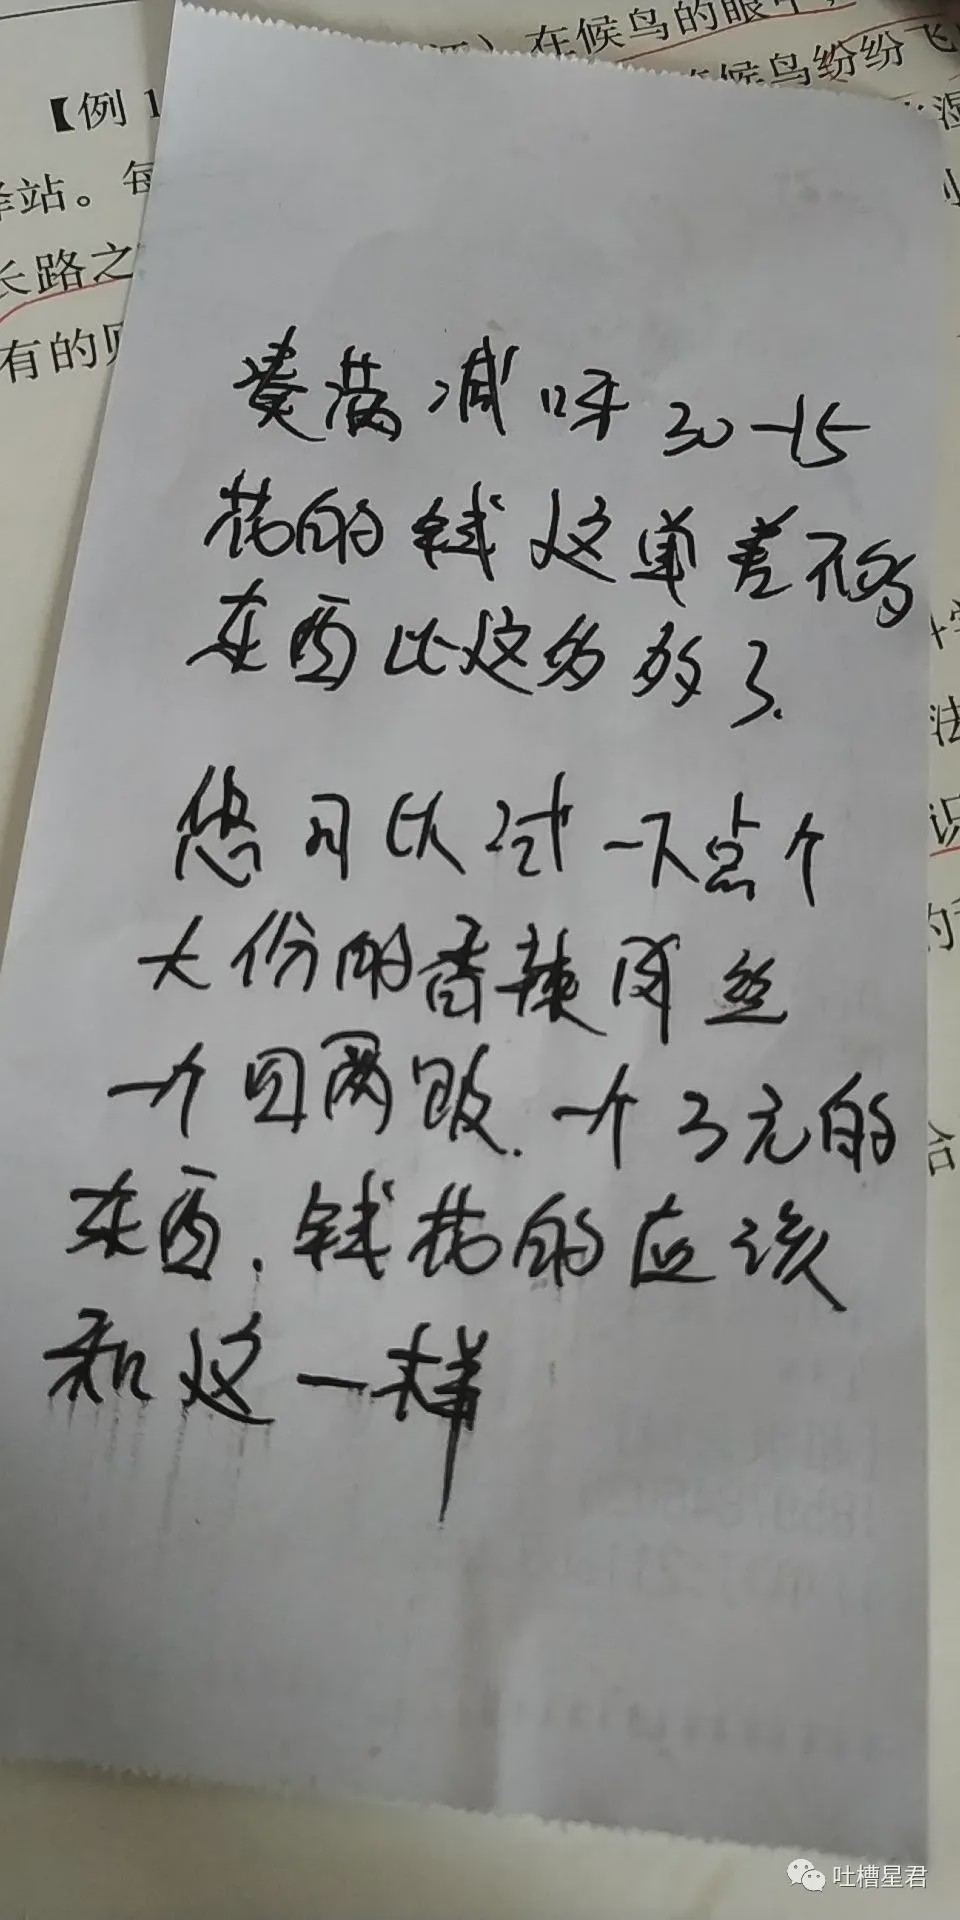 在候鸟的眼
候鸟纷纷飞
【例1
驿站。每
长路之
有的则
凑满减呀 30-15
花的钱这单差不多
东西比这多多了.
您可以试一下点个
大份的香辣肉丝
一个回两
一个3元的
东西.钱花的应该
和这一样
吐槽星君